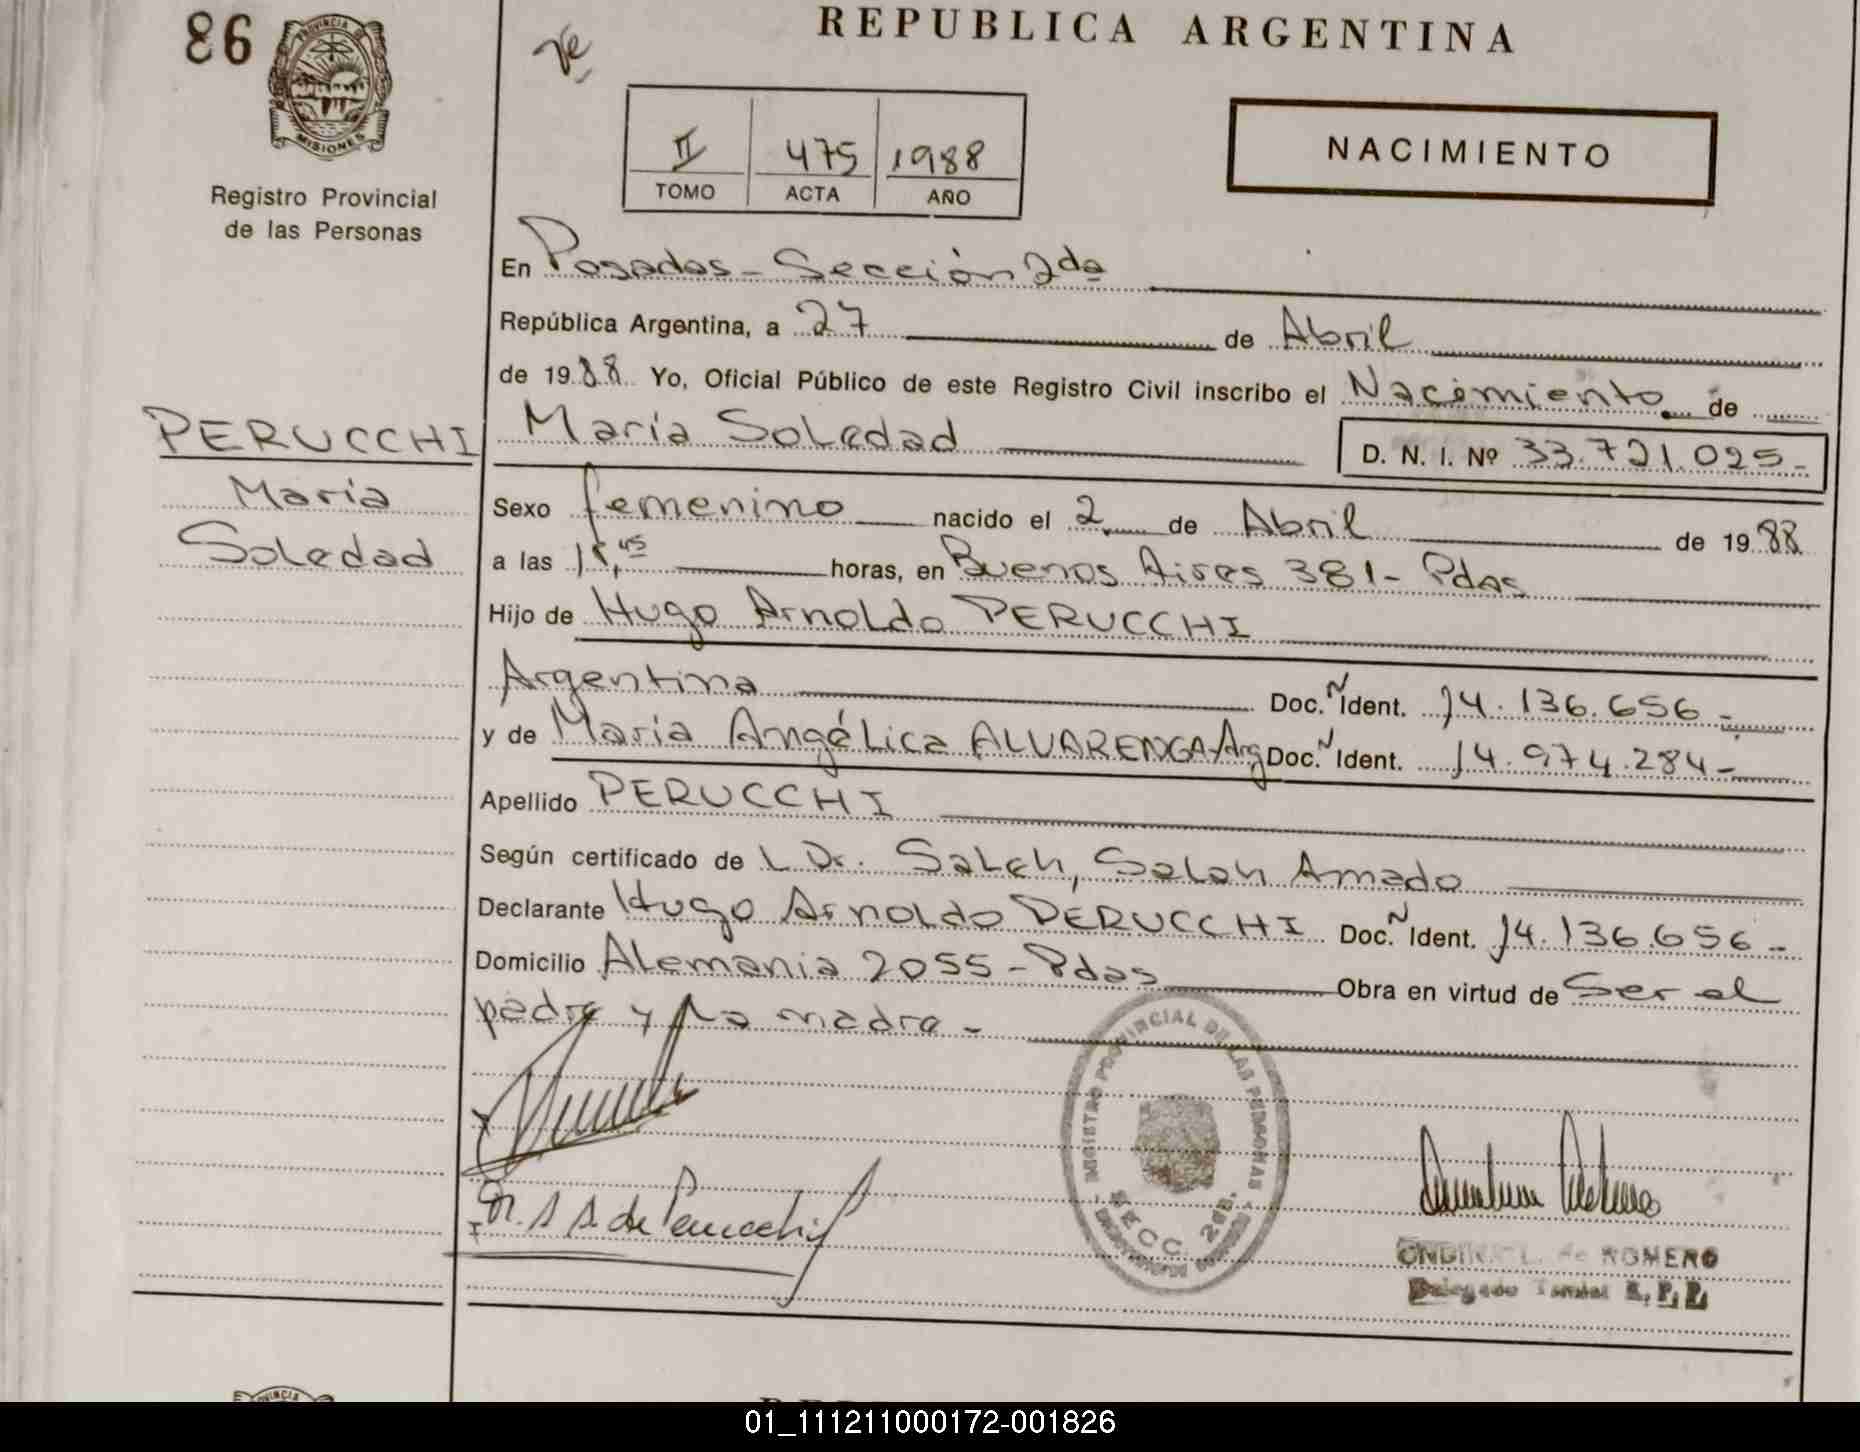 86
PROVINCIA DE
MISIONES
Registro Provincial
de las Personas
REPUBLICA ARGENTINA
II 475 1988
TOMO ACTA AÑO
NACIMIENTO
En Posadas - Sección 2da
República Argentina, a 27 de Abril
de 1988 Yo, Oficial Público de este Registro Civil inscribo el Nacimiento de
María Soledad D. N. I. Nº 33.721.025-
PERUCCHI
María
Soledad
Sexo femenino nacido el 2 de Abril de 1988
a las 15,45 horas, en Buenos Aires 381- Pdas
Hijo de Hugo Arnoldo PERUCCHI
Argentina Doc. N Ident. 14.136.656-
y de María Angélica ALVARENGA-Arg Doc. N Ident. 14.974.284-
Apellido PERUCCHI
Según certificado de L Dr. Saleh, Salah Amado
Declarante Hugo Arnoldo PERUCCHI Doc. N Ident. 14.136.656-
Domicilio Alemania 2055 - Pdas Obra en virtud de Ser el
padre y la madre -
REGISTRO PROVINCIAL DE LAS PERSONAS
SECC. 2da.
de Perucchi
L. de ROMERO
Delegado Titular R. P. P.
PROVINCIA
01_111211000172-001826